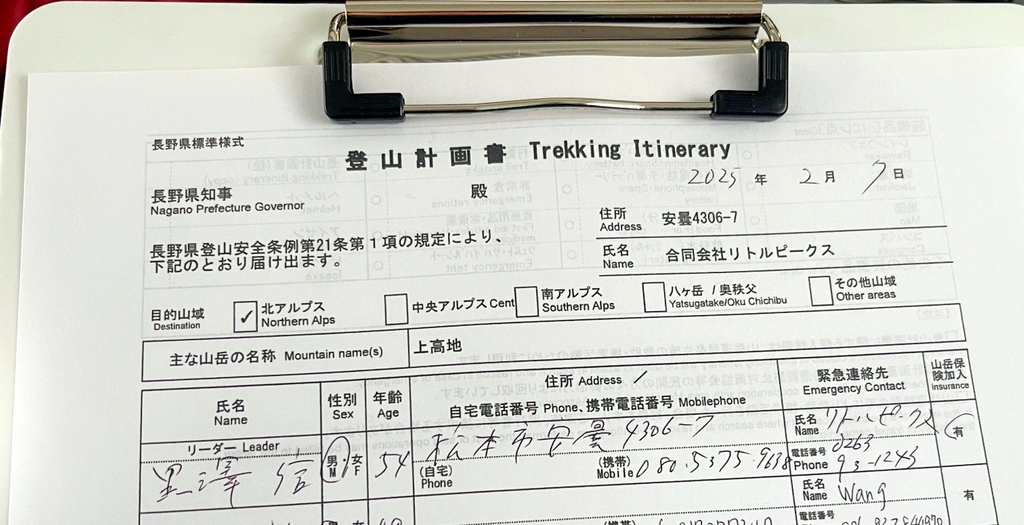 長野県標準様式
登山計画書 Trekking Itinerary
2025 年 2 月 7 日
長野県知事 殿
Nagano Prefecture Governor
住所 安曇4306-7
Address
長野県登山安全条例第21条第1項の規定により、
下記のとおり届け出ます。
氏名 合同会社リトルピークス
Name
目的山域
Destination
✓ 北アルプス
Northern Alps
中央アルプス Cent
南アルプス
Southern Alps
八ヶ岳 / 奥秩父
Yatsugatake/Oku Chichibu
その他山域
Other areas
主な山岳の名称 Mountain name(s) 上高地
氏名
Name
性別
Sex
年齢
Age
住所 Address /
自宅電話番号 Phone、携帯電話番号 Mobilephone
緊急連絡先
Emergency Contact
山岳保
険加入
Insurance
リーダー Leader
黒澤 信
男・女
M F
54
松本市安曇 4306-7
(自宅)
Phone
(携帯)
Mobile 080.5375.9638
氏名
Name リトルピークス
電話番号
Phone 0263
93-1245
有
氏名
Name Wang
電話番号
有